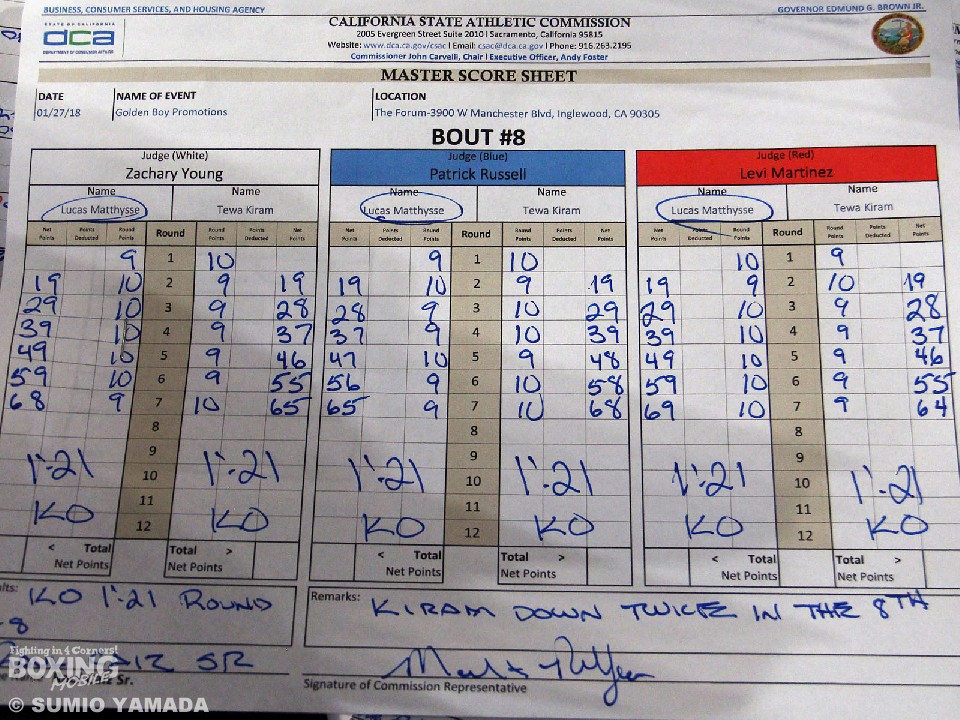 BUSINESS, CONSUMER SERVICES, AND HOUSING AGENCY
GOVERNOR EDMUND G. BROWN JR.
STATE OF CALIFORNIA
dca
DEPARTMENT OF CONSUMER AFFAIRS
CALIFORNIA STATE ATHLETIC COMMISSION
2005 Evergreen Street Suite 2010 | Sacramento, California 95815
Website: www.dca.ca.gov/csac | Email: csac@dca.ca.gov | Phone: 916.263.2195
Commissioner John Carvelli, Chair | Executive Officer, Andy Foster
MASTER SCORE SHEET
DATE NAME OF EVENT LOCATION
01/27/18 Golden Boy Promotions The Forum-3900 W Manchester Blvd, Inglewood, CA 90305
BOUT #8
Judge (White) Judge (Blue) Judge (Red)
Zachary Young Patrick Russell Levi Martinez
Name Name Name Name Name Name
Lucas Matthysse Tewa Kiram Lucas Matthysse Tewa Kiram Lucas Matthysse Tewa Kiram
Net Points Points Deducted Round Points Round Round Points Points Deducted Net Points Net Points Points Deducted Round Points Round Round Points Points Deducted Net Points Net Points Points Deducted Round Points Round Round Points Points Deducted Net Points
9 1 10 9 1 10 10 1 9
19 10 2 9 19 19 10 2 9 19 19 9 2 10 19
29 10 3 9 28 28 9 3 10 29 29 10 3 9 28
39 10 4 9 37 37 9 4 10 39 39 10 4 9 37
49 10 5 9 46 47 10 5 9 48 49 10 5 9 46
59 10 6 9 55 56 9 6 10 58 59 10 6 9 55
68 9 7 10 65 65 9 7 10 68 69 10 7 9 64
8 8 8
9 9 9
1:21 10 1:21 1:21 10 1:21 1:21 10 1:21
11 11 11
KO 12 KO KO 12 KO KO 12 KO
< Total Total > < Total Total > < Total Total >
Net Points Net Points Net Points Net Points Net Points Net Points
KO 1:21 ROUND
8
Remarks: KIRAM DOWN TWICE IN THE 8TH
SR
Sr.
Signature of Commission Representative
Fighting in 4 Corners!
BOXING
MOBILE
© SUMIO YAMADA